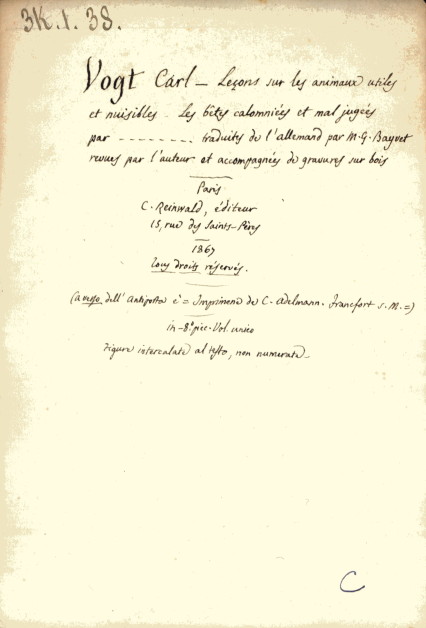 3K.1.38.
Vogt Carl — Leçons sur les animaux utiles
et nuisibles. Les bêtes calomniées et mal jugées
par - - - - - - - - traduites de l'allemand par M. G. Bayvet
revues par l'auteur et accompagnées de gravures sur bois
Paris
C. Reinwald, éditeur
15, rue des Saints-Pères
1867
Tous droits réservés.
(a verso dell' Antiporta è = Imprimerie de C. Adelmann. Francfort s. M. =)
in-8° picc. Vol. unico
Figure intercalate al testo, non numerate_
C